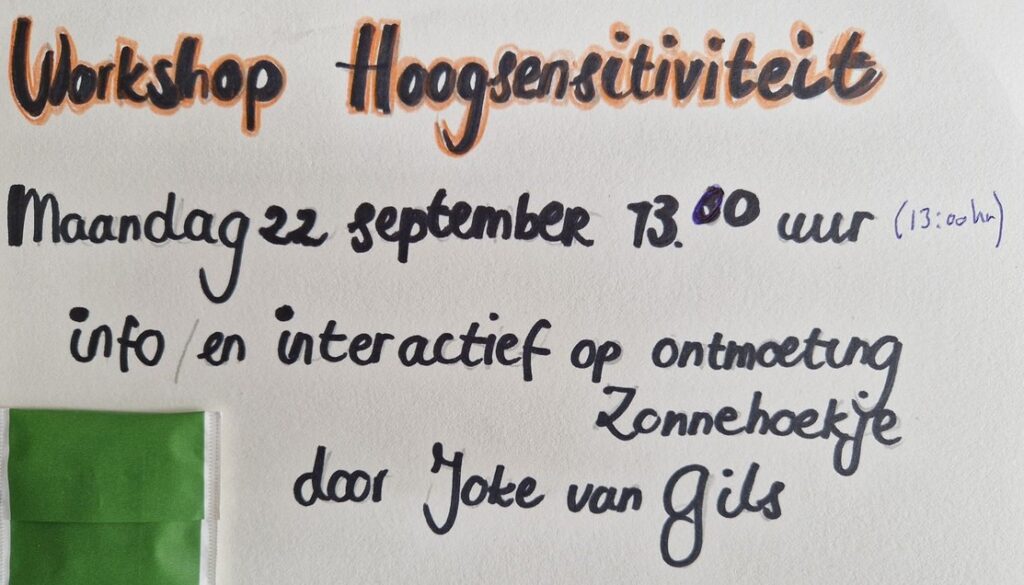 Workshop Hoogsensitiviteit
Maandag 22 september 13.00 uur (13:00hr)
info / en interactief op ontmoeting
Zonnehoekje
door Joke van Gils